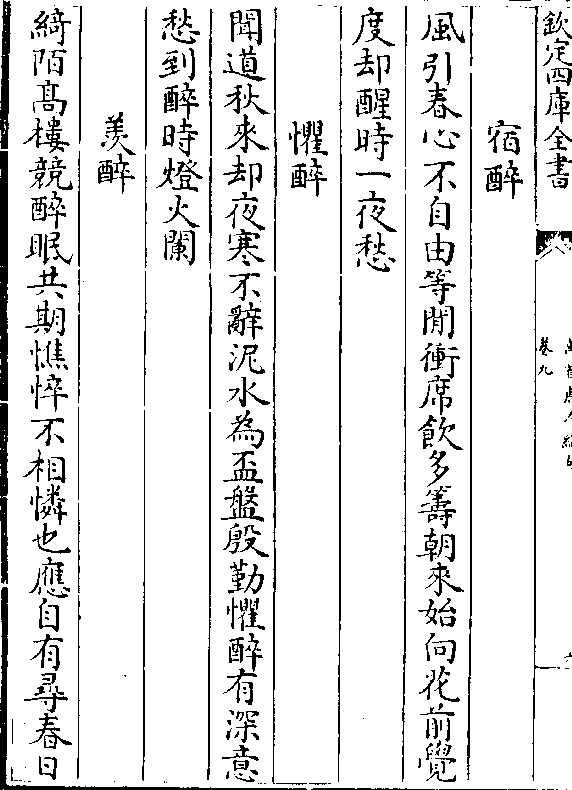 欽定四庫全書
卷九
宿醉
風引春心不自由等閒衝席飲多籌朝來始向花前覺
度却醒時一夜愁
懼醉
聞道秋來却夜寒不辭泥水為盃盤殷勤懼醉有深意
愁到醉時燈火闌
羨醉
綺陌髙樓競醉眠共期憔悴不相憐也應自有尋春日